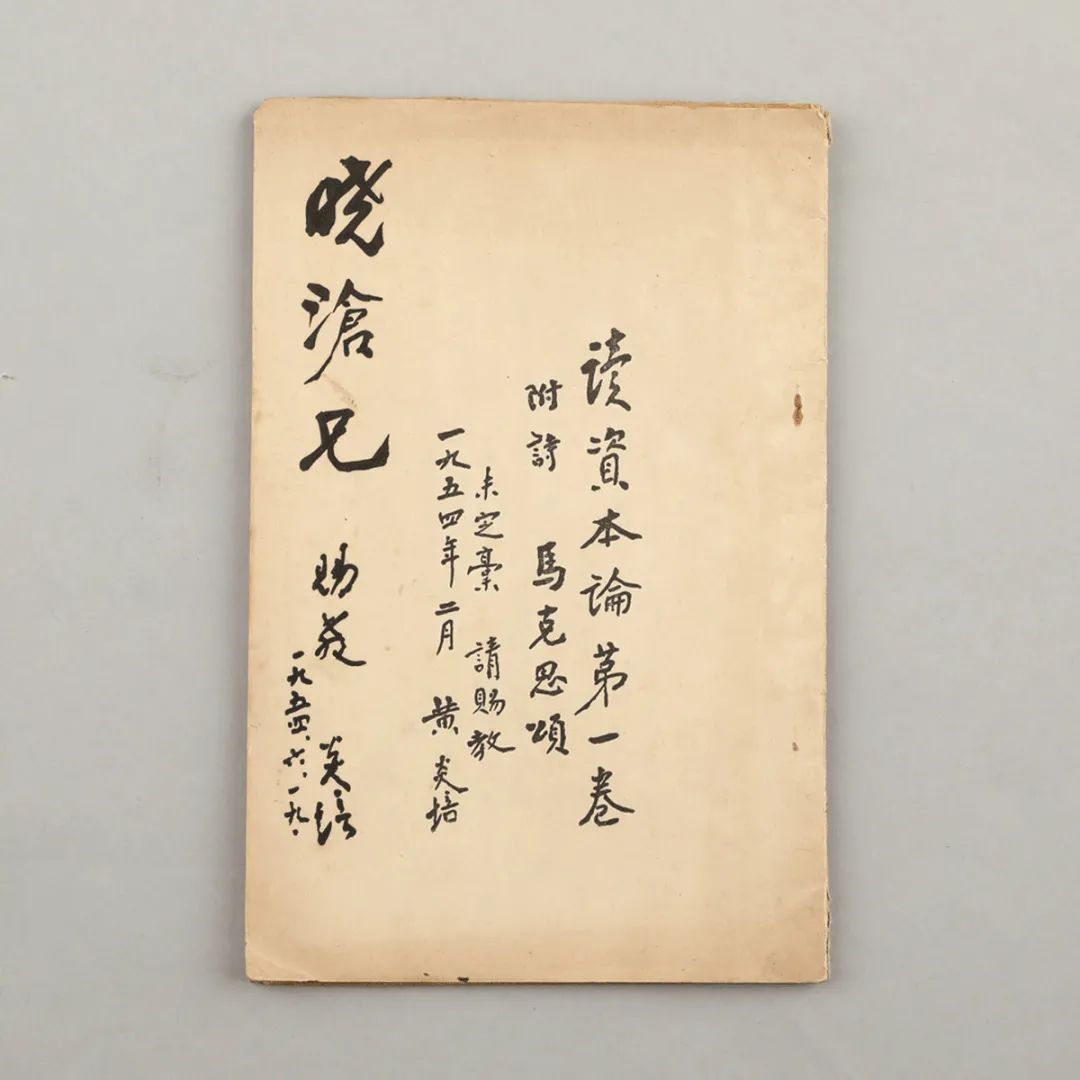 读資本論第一卷
附詩 馬克思頌
未定稾 請賜教
一九五四年二月 黄炎培
晓滄兄 賜教 炎培
一九五四、六、一九、